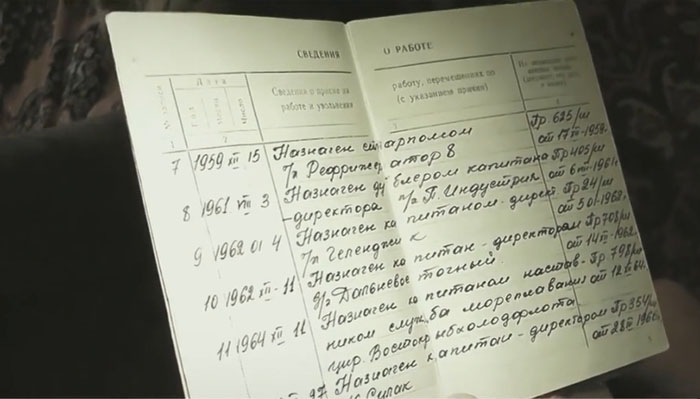 СВЕДЕНИЯ О РАБОТЕ
Дата
Год
Число
Сведения о приеме на работу, перемещениях по
работе и увольнении (с указанием причин)
1 2 3 4
7 1959 XII 15 Назначен старпомом Пр 625/л
п/х Рефрижератор 8 от 17 XII-1959.
8 1961 VIII 3 Назначен дублером капитана Пр 405/л
-директора п/х П. Индустрия от 1961г.
9 1962 01 4 Назначен капитаном-директ. Пр 24/л
п/х Геленджик от 5 01-1962г.
10 1962 XII-11 Назначен капитан-директором Пр 708/л
Дальневосточный. от 14 XII-1962.
11 1964 XII 11 Назначен капитаном настав- Пр 798/л
ником служба мореплавания от 12 64.
упр. Востокрыбхолодфлота
Назначен капитан-директором Пр 354/л
от 28